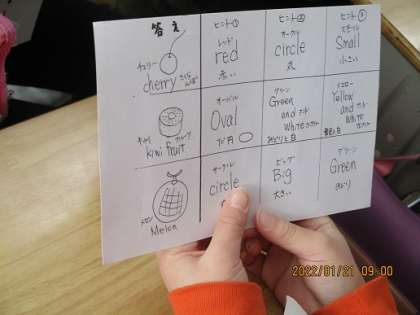 答え ヒント① ヒント② ヒント③
チェリー cherry
レッド red 赤い
サークル circle 丸
スモール Small 小さい
キウイ フルーツ kiwi fruit
オーバル Oval
グリーン Green and White みどりと白
イエロー Yellow and White 黄色と白
メロン Melon
サークル circle
ビッグ Big 大きい
グリーン Green みどり
2022/01/21 09:00